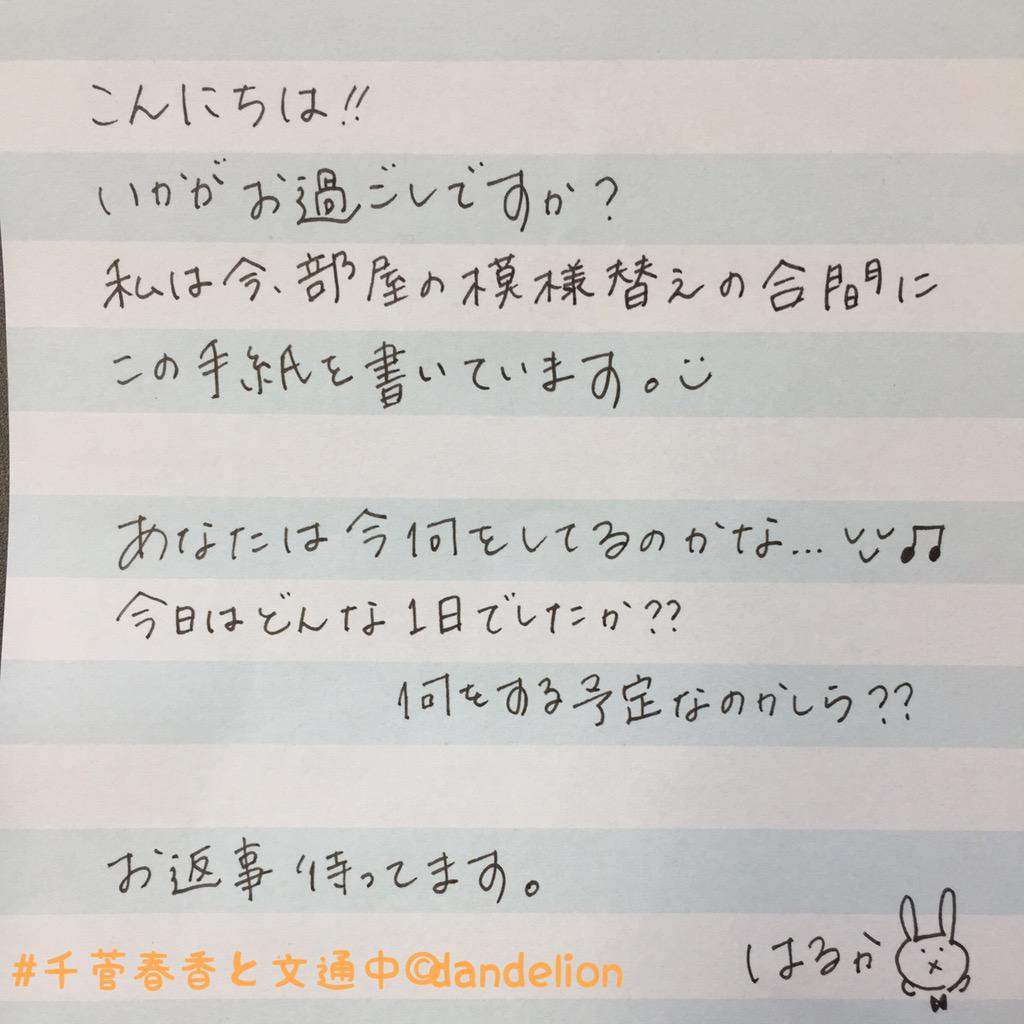 こんにちは!!
いかがお過ごしですか?
私は今、部屋の模様替えの合間に
この手紙を書いています。
あなたは今何をしてるのかな...
今日はどんな1日でしたか??
何をする予定なのかしら??
お返事待ってます。
はるか
#千菅春香と文通中©dandelion